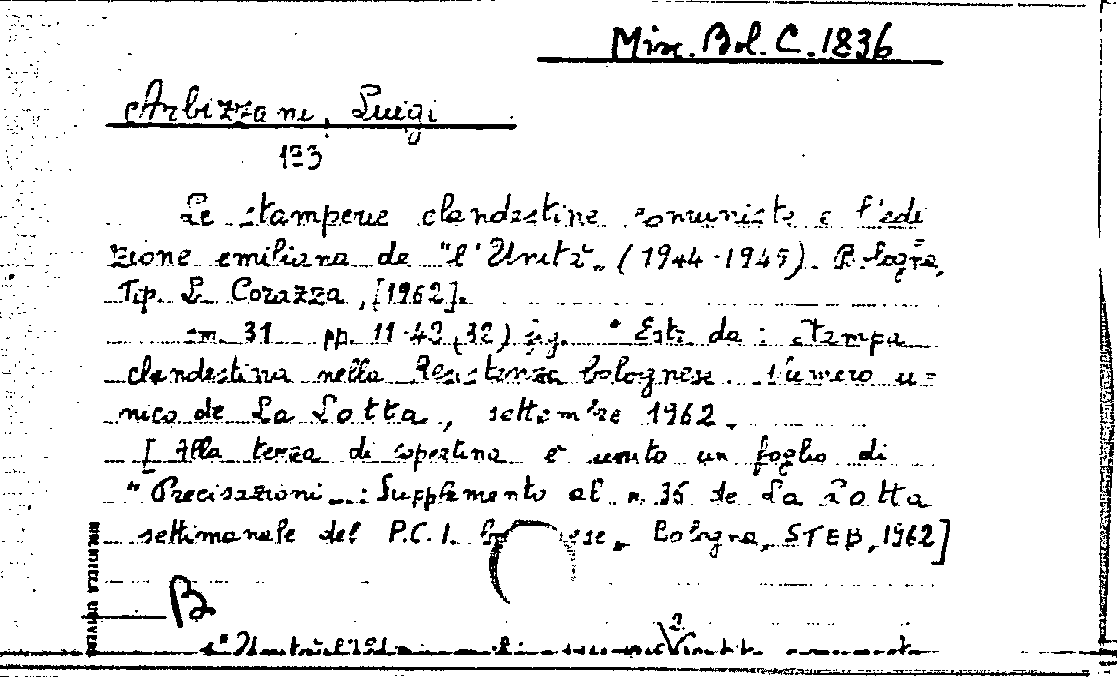 Misc. Bol. C. 1836
Arbizzani, Luigi
Le stamperie clandestine comuniste e l'edi
zione emiliana de "l'Unità" (1944-1945). Bologna,
Tip. L. Corazza, [1962].
cm. 31 pp. 11-42 (32) fig. * Estr. da: Stampa
clandestina nella Resistenza bolognese. Numero u=
nico de La Lotta, settembre 1962.
[Alla terza di copertina è unito un foglio di
"Precisazioni": Supplemento al n. 36 de La Lotta
settimanale del P.C.I. bolognese. Bologna, STEB, 1962]
BIBLIOTECA UNIVER
B
2